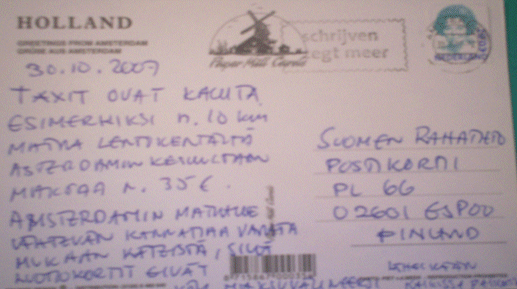 HOLLAND
GREETINGS FROM AMSTERDAM
GRÜSSE AUS AMSTERDAM
Paper Mill Cards
schrijven
zegt meer
NEDERLAND
30.10.2007
TAXIT OVAT KALLIITA
ESIMERKIKSI n. 10 km
MATKA LENTOKENTÄLTÄ
ASTERDAMIN KESKUSTAAN
MAKSAA n. 35 €.
AMSTERDAMIN MATKALLE
KANNATTAA VARATA
MUKAAN KÄTEISTÄ, SILLÄ
LUOTTOKORTIT EIVÄT
MAKSUVÄLINEERI
SUOMEN RAHATIETO
POSTIKORTTI
PL 66
02601 ESPOO
FINLAND